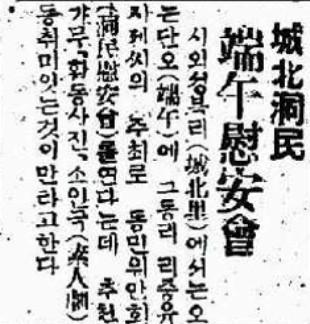 城北洞民
端午慰安會
시외성부리(城北里)에서는오
는단오(端午)에 그동리 리중유
씨의 주최로 동민위안회
(洞民慰安會)를연다는데 추천
활동사진 소인극(素人劇)
등취미잇는것이만라고한다